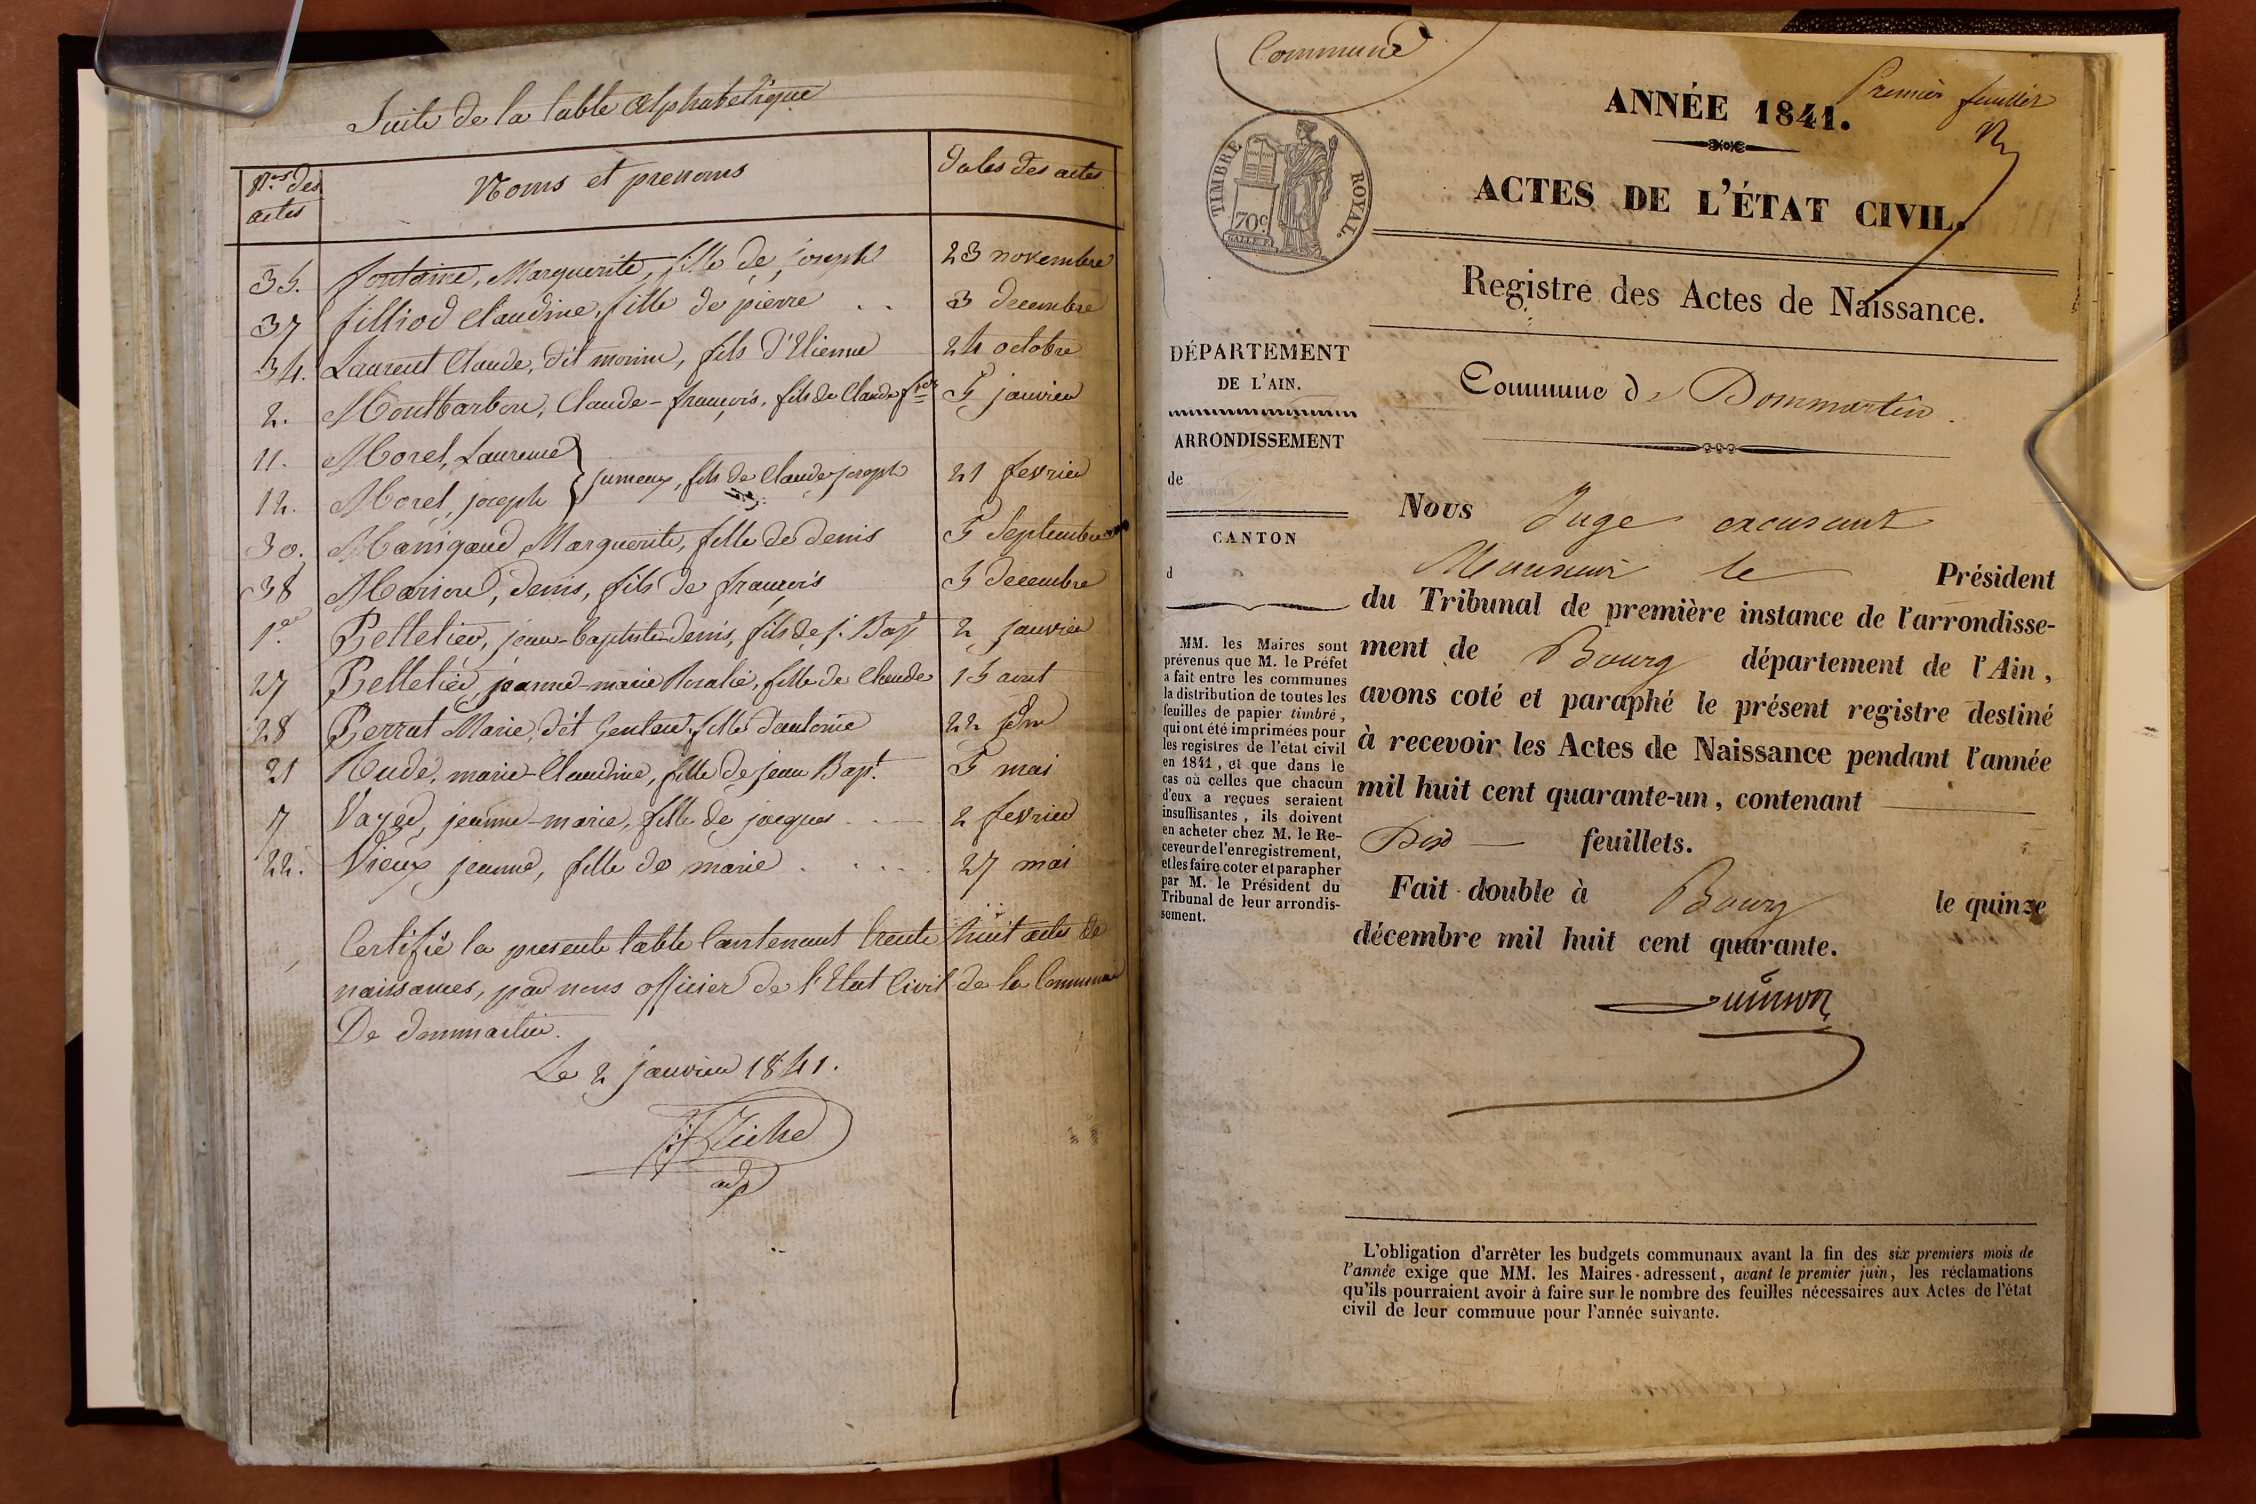 Suite de la table Alphabetique
Nos des actes
Noms et prenoms
Dates des actes
35. fontaine, Marguerite, fille de joseph 23 novembre
37 filliod Claudine, fille de pierre . . 3 decembre
34. Laurent Claude, dit morin, fils d'Etienne 24 octobre
2. Montbarbon, Claude-françois, fils de Claude fois 5 janvier
11. Morel, Laurence
jumeaux, fils de Claude joseph 21 fevrier
12. Morel, joseph
30. Manigaud Marguerite, fille de denis 5 Septembre
38 Marion, denis, fils de françois 5 decembre
1er Pelletier, jean-baptiste-denis, fils de j. Bapt 2 janvier
27 Pelletier, jeanne-marie Rosalie, fille de Claude 15 aout
28 Perrat Marie, dit fille d'antoine 22
21 Rude, marie-Claudine, fille de jean Bapt. 5 mai
7 Vayer, jeanne-marie, fille de jacques . . 2 fevrier
22. Vieux jeanne, fille de marie . . . . 27 mai
Certifié la presente table Contenant trente huit actes de
naissances, par nous officier de l'Etat Civil de la Commune
De dommartin.
Le 2 janvier 1841.
adj
Commune
Premier feuillet
ANNÉE 1841.
TIMBRE ROYAL.
70c.
ACTES DE L'ÉTAT CIVIL.
Registre des Actes de Naissance.
DÉPARTEMENT
DE L'AIN.
ARRONDISSEMENT
de
CANTON
d
MM. les Maires sont
prévenus que M. le Préfet
a fait entre les communes
la distribution de toutes les
feuilles de papier timbré,
qui ont été imprimées pour
les registres de l'état civil
en 1841, et que dans le
cas où celles que chacun
d'eux a reçues seraient
insuffisantes, ils doivent
en acheter chez M. le Re-
ceveur de l'enregistrement,
et les faire coter et parapher
par M. le Président du
Tribunal de leur arrondis-
sement.
Commune de Dommartin.
Nous Juge excusant
Monsieur le Président
du Tribunal de première instance de l'arrondisse-
ment de Bourg département de l'Ain,
avons coté et paraphé le présent registre destiné
à recevoir les Actes de Naissance pendant l'année
mil huit cent quarante-un, contenant
Dix feuillets.
Fait double à Bourg le quinze
décembre mil huit cent quarante.
L'obligation d'arrêter les budgets communaux avant la fin des six premiers mois de
l'année exige que MM. les Maires adressent, avant le premier juin, les réclamations
qu'ils pourraient avoir à faire sur le nombre des feuilles nécessaires aux Actes de l'état
civil de leur commune pour l'année suivante.